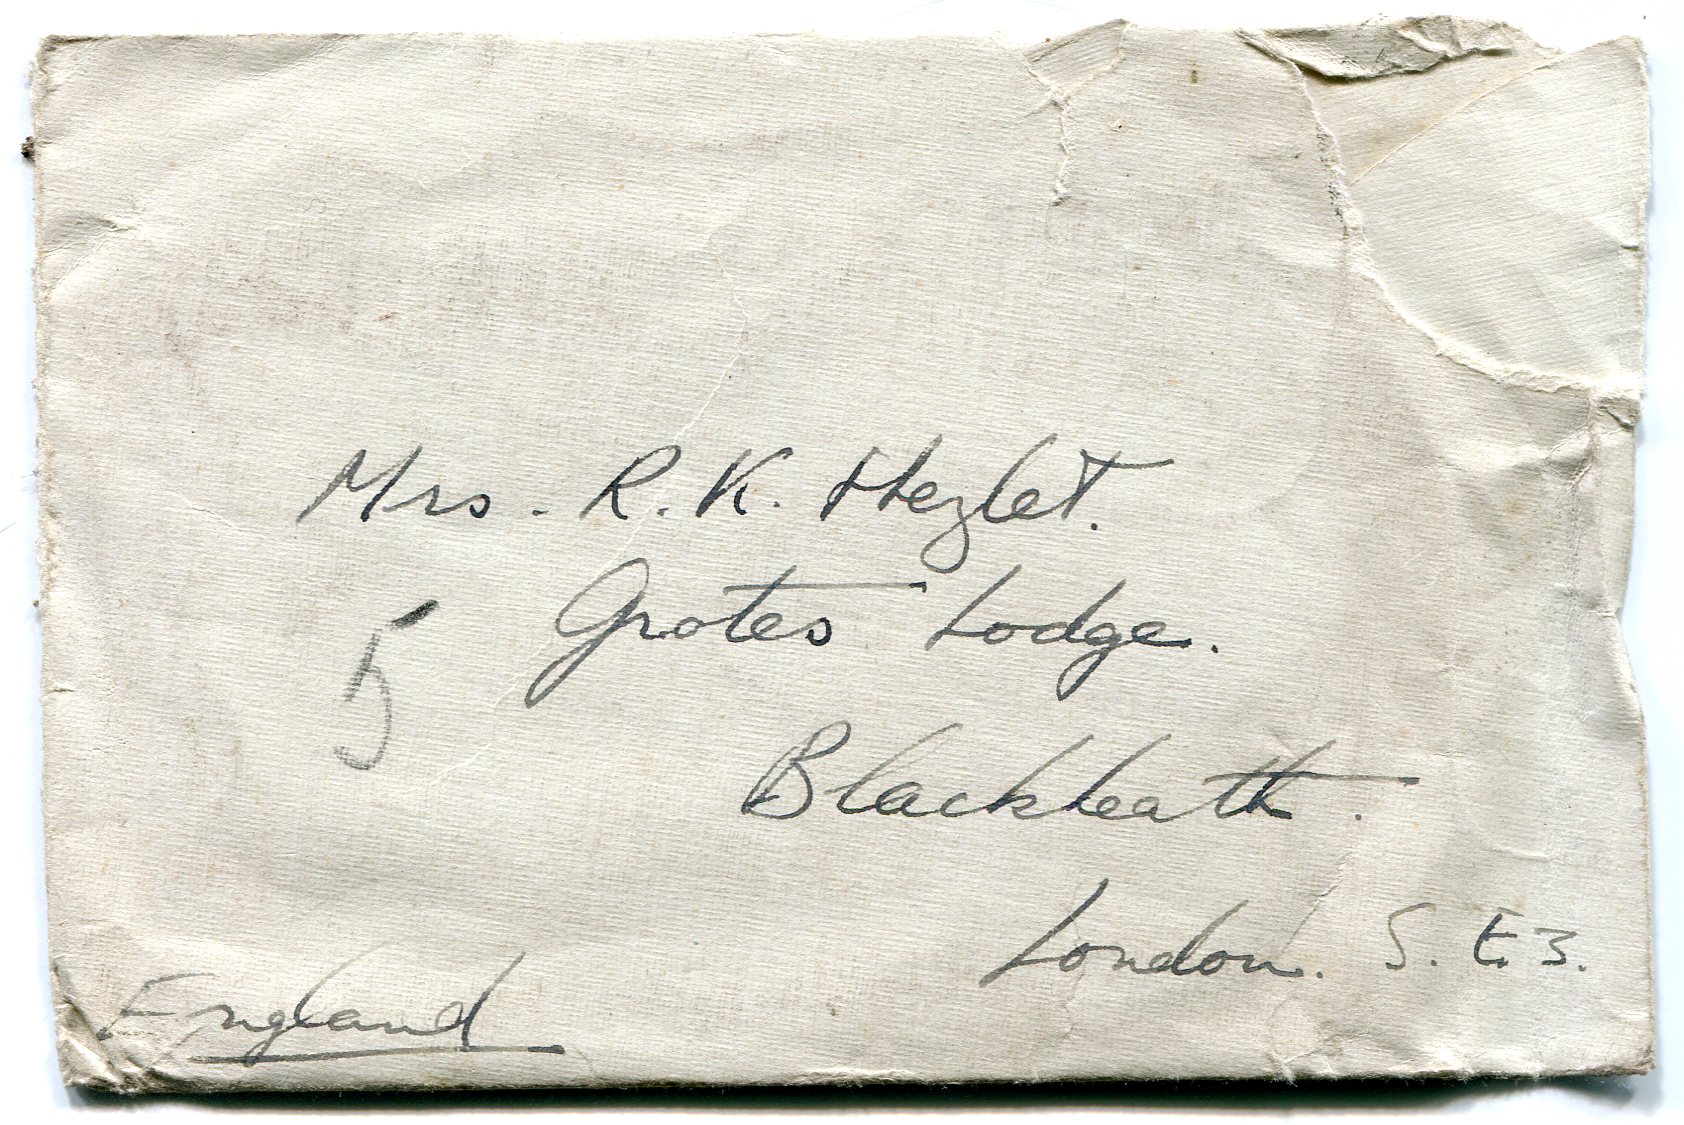 Mrs. R. K. Hezlet.
Grotes Lodge.
5
Blackheath.
London. S. E. 3.
England